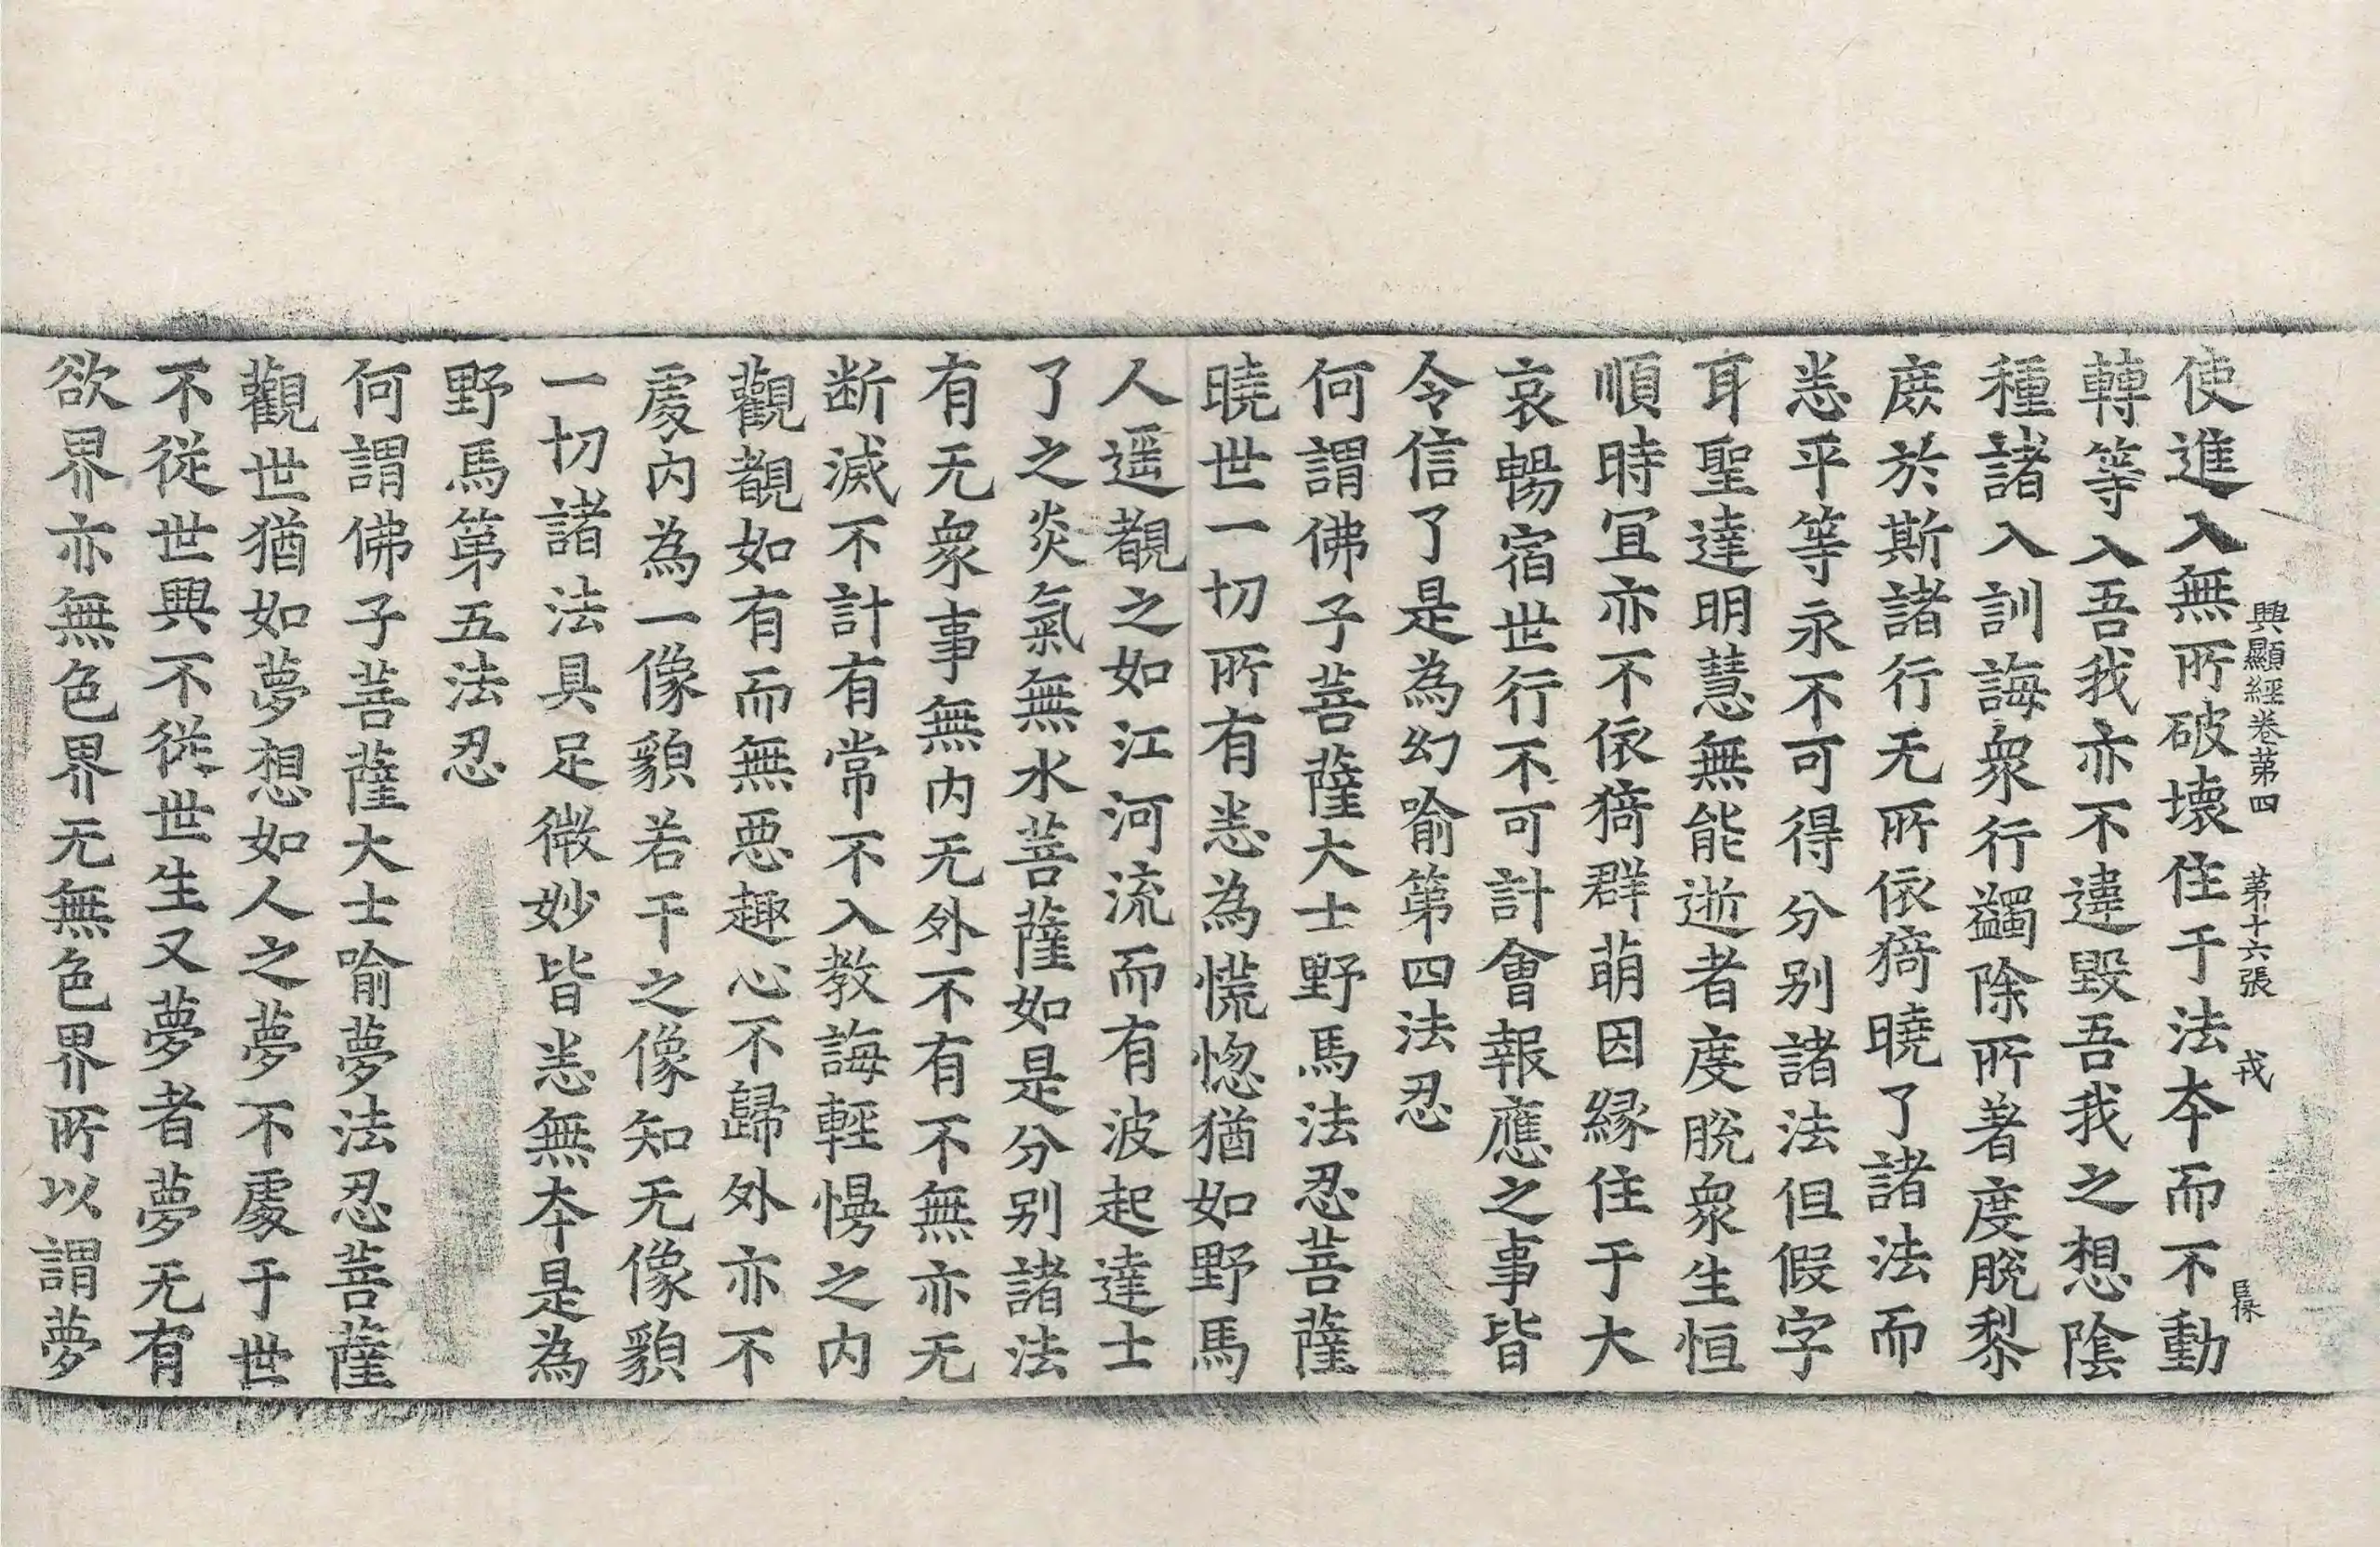 使進入無所破壞住于法夲而不動
興顯經卷苐四　苐十六張　戎
轉等入吾我亦不違毀吾我之想陰
種諸入訓誨衆行蠲除所著度脫黎
庶於斯諸行无所依猗曉了諸法而
恙平等永不可得分别諸法但假字
耳聖達明慧無能逝者度脫衆生恒
順時冝亦不依猗群萌因緣住于大
哀暢宿世行不可計會報應之事皆
令信了是為幻喻第四法忍
何謂佛子菩薩大士野馬法忍菩薩
曉世一切所有恙為慌惚猶如野馬
人遥覩之如江河流而有波起達士
了之炎氣無水菩薩如是分别諸法
有无衆事無内无外不有不無亦无
断滅不計有常不入教誨輕慢之内
觀覩如有而無惡趣心不歸外亦不
處内為一像貌若干之像知无像貌
一切諸法具足微妙皆恙無夲是為
野馬第五法忍
何謂佛子菩薩大士喻夢法忍菩薩
觀世猶如夢想如人之夢不處于世
不從世興不從世生又夢者夢无有
欲界亦無色界无無色界所以謂夢